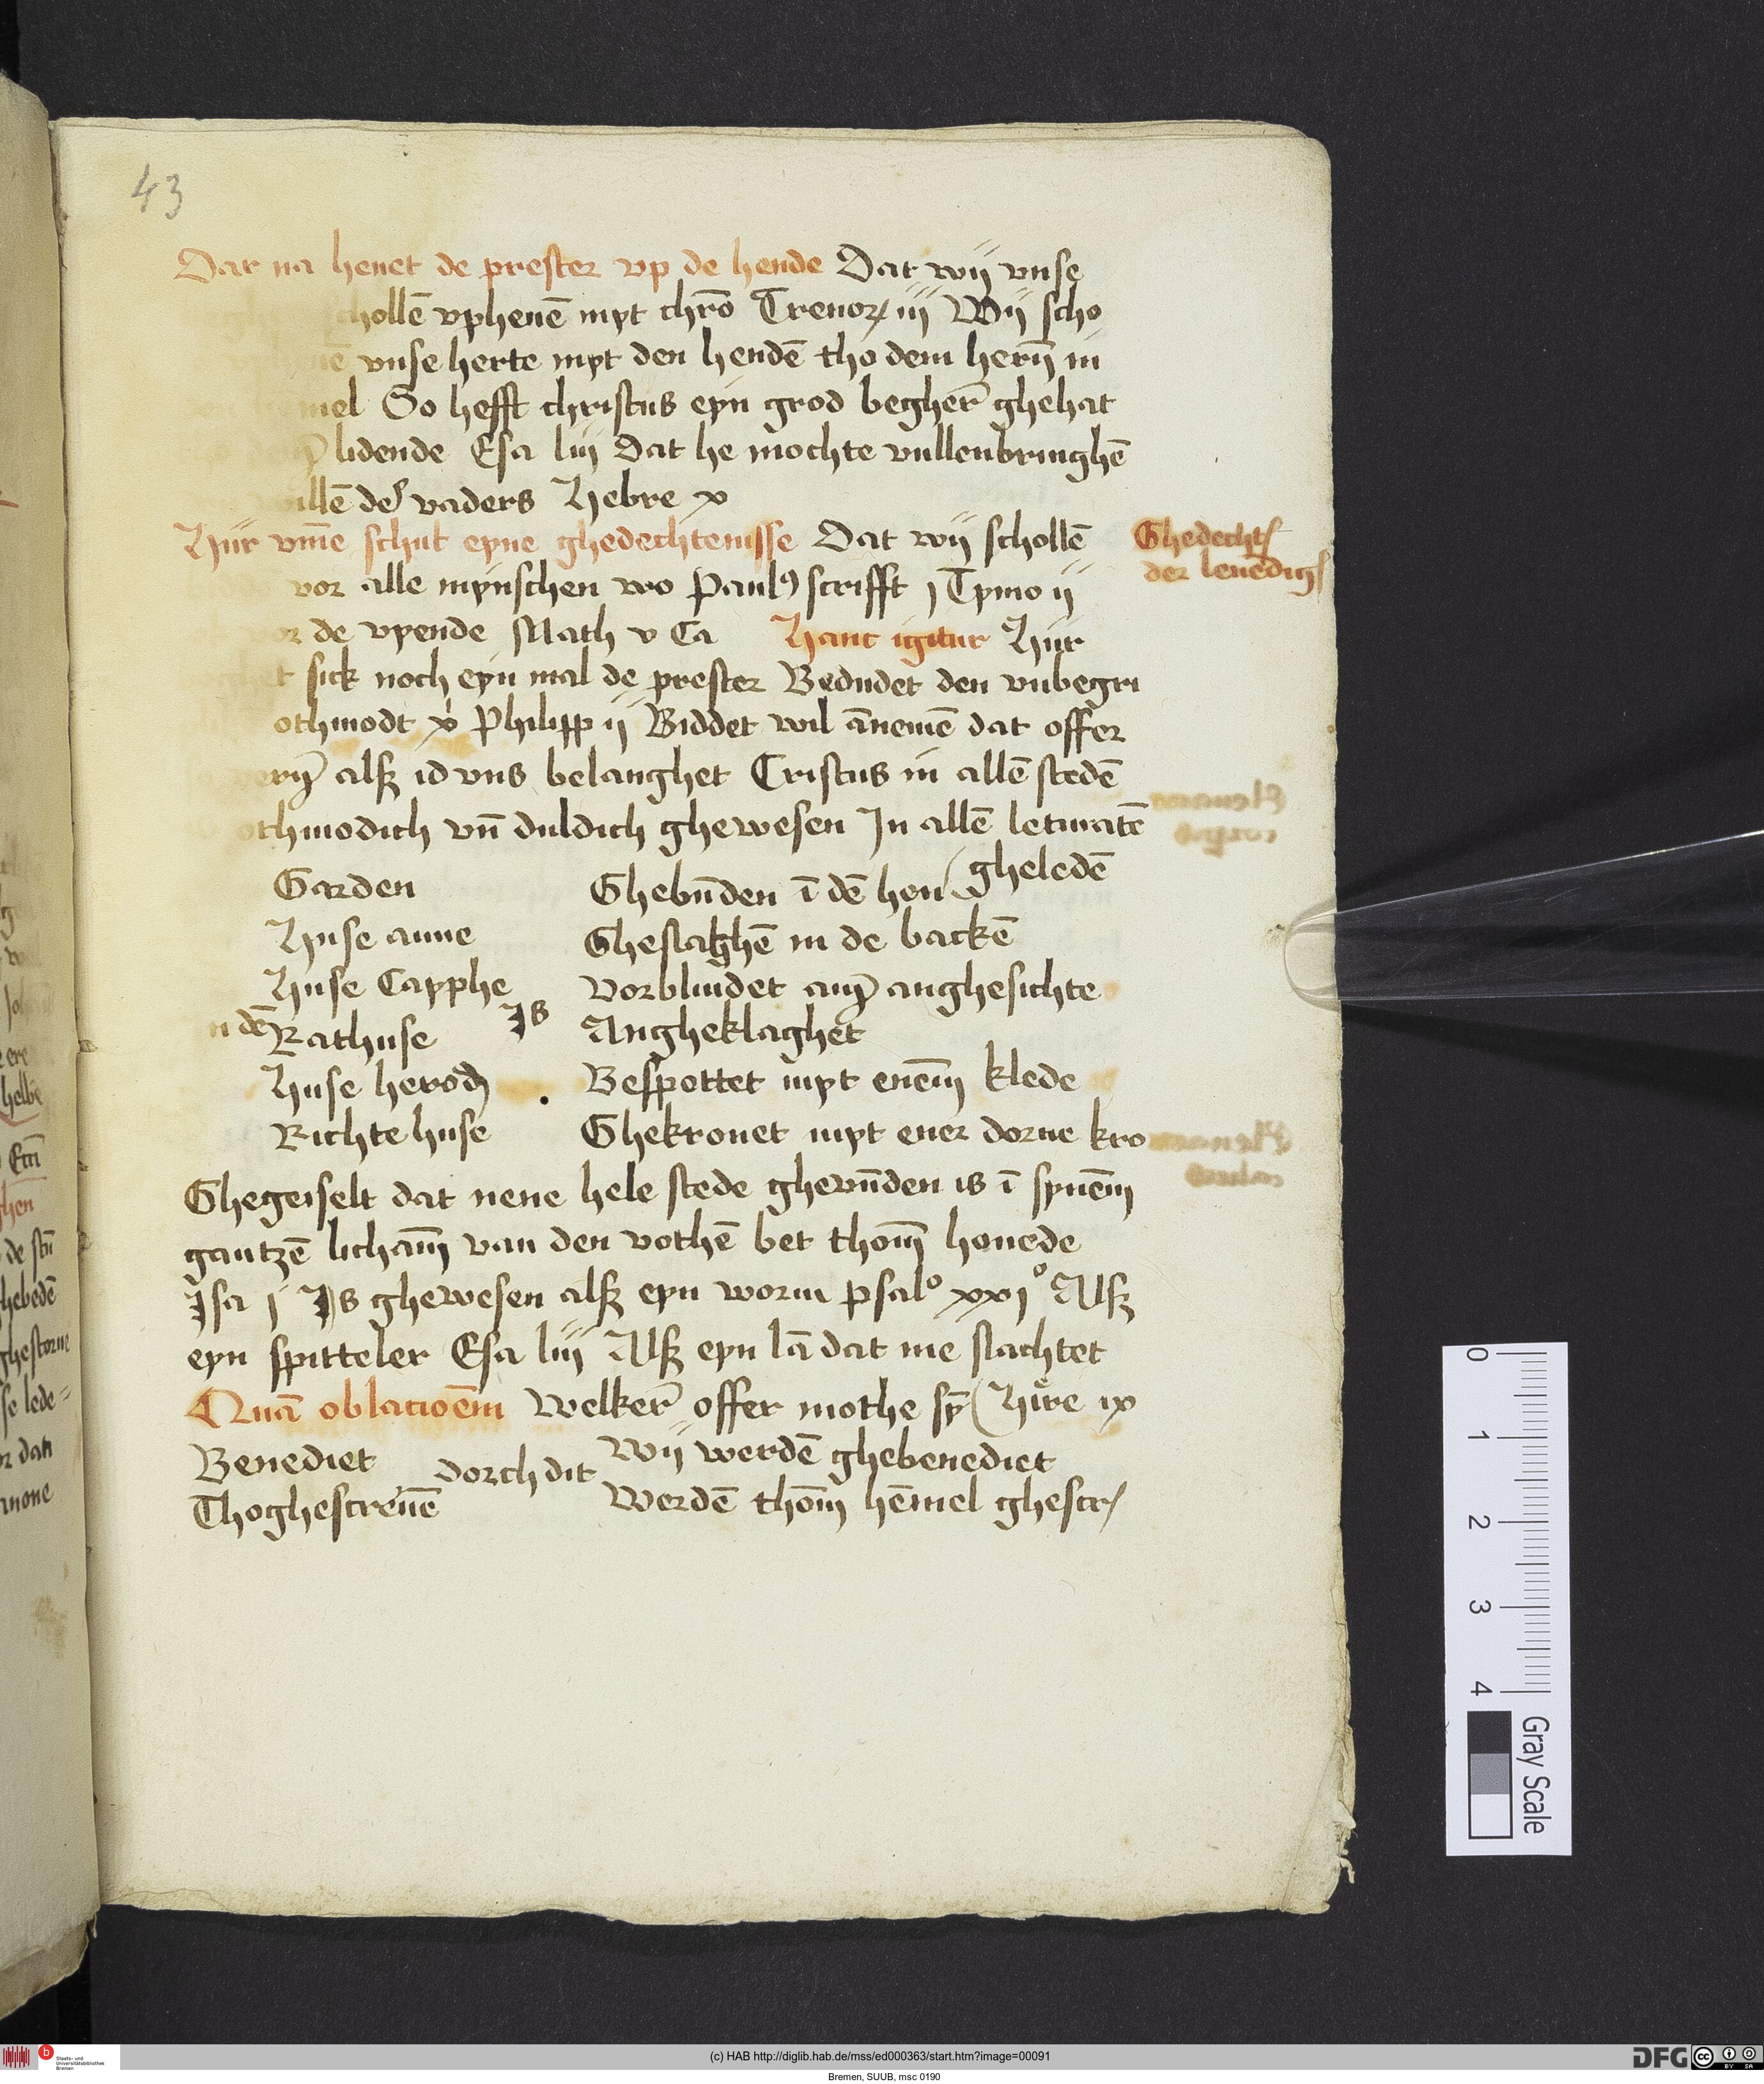 43
Dar na heuet de prester vp de hende Dat wij vnse
schollē vpheuē myt chr̄o Trenoꝝ iij Wij scho
vnse herte myt den hendē tho dem hern̄ in
mel So hefft christus eyn grod begher̄ ghehat
lidende Esa liij Dat he mochte vullenbringhē
willē des vaders Hebre x
Hiir vm̄e schut eyne ghedechtenisse Dat wij schollē
Ghedecht
der leuedig
vor alle mynschen wo Paulꝰ scrifft j Tymo ij
vor de vyende Math v Ca Hanc igitur Hiir
sick noch eyn mal de prester Bedudet den vnbegri
othmodt xp̄i Philipp ij Biddet wil ānemē dat offer
alß id vns belanghet Cristus in allē stedē
othmodich vn̄ duldich ghewesen In allē letmatē
gheledē
Garden Ghebūden ī dē hen
Huse anne Gheslaghē in de backē
Huse Capphe Vorblindet am anghesichte
n dē Rathuse Is Angheklaghet
Huse herod Bespottet myt enem̄ klede
Richte huse Ghekronet myt ener dorne kro
Ghegeiselt dat nene hele stede ghevūden is ī synem̄
gantzē licham̄ van den vothē bet thom̄ houede
Isa j Is ghewesen alß eyn worm psalº xxjº Alß
eyn spitteler Esa liij Alß eyn lā dat me slachtet
Quā oblacioēm Welker̄ offer mothe sȳ Hi̅re ix
Benediet dorch dit Wij werdē ghebenediet
Thoghescreuē Werdē thom̄ hēmel ghescr
(c) HAB http://diglib.hab.de/mss/ed000363/start.htm?image=00091
Bremen, SUUB, msc 0190
0
1
2
3
4
Gray Scale
Staats- und
Universitätsbibliothek
Bremen
DFG